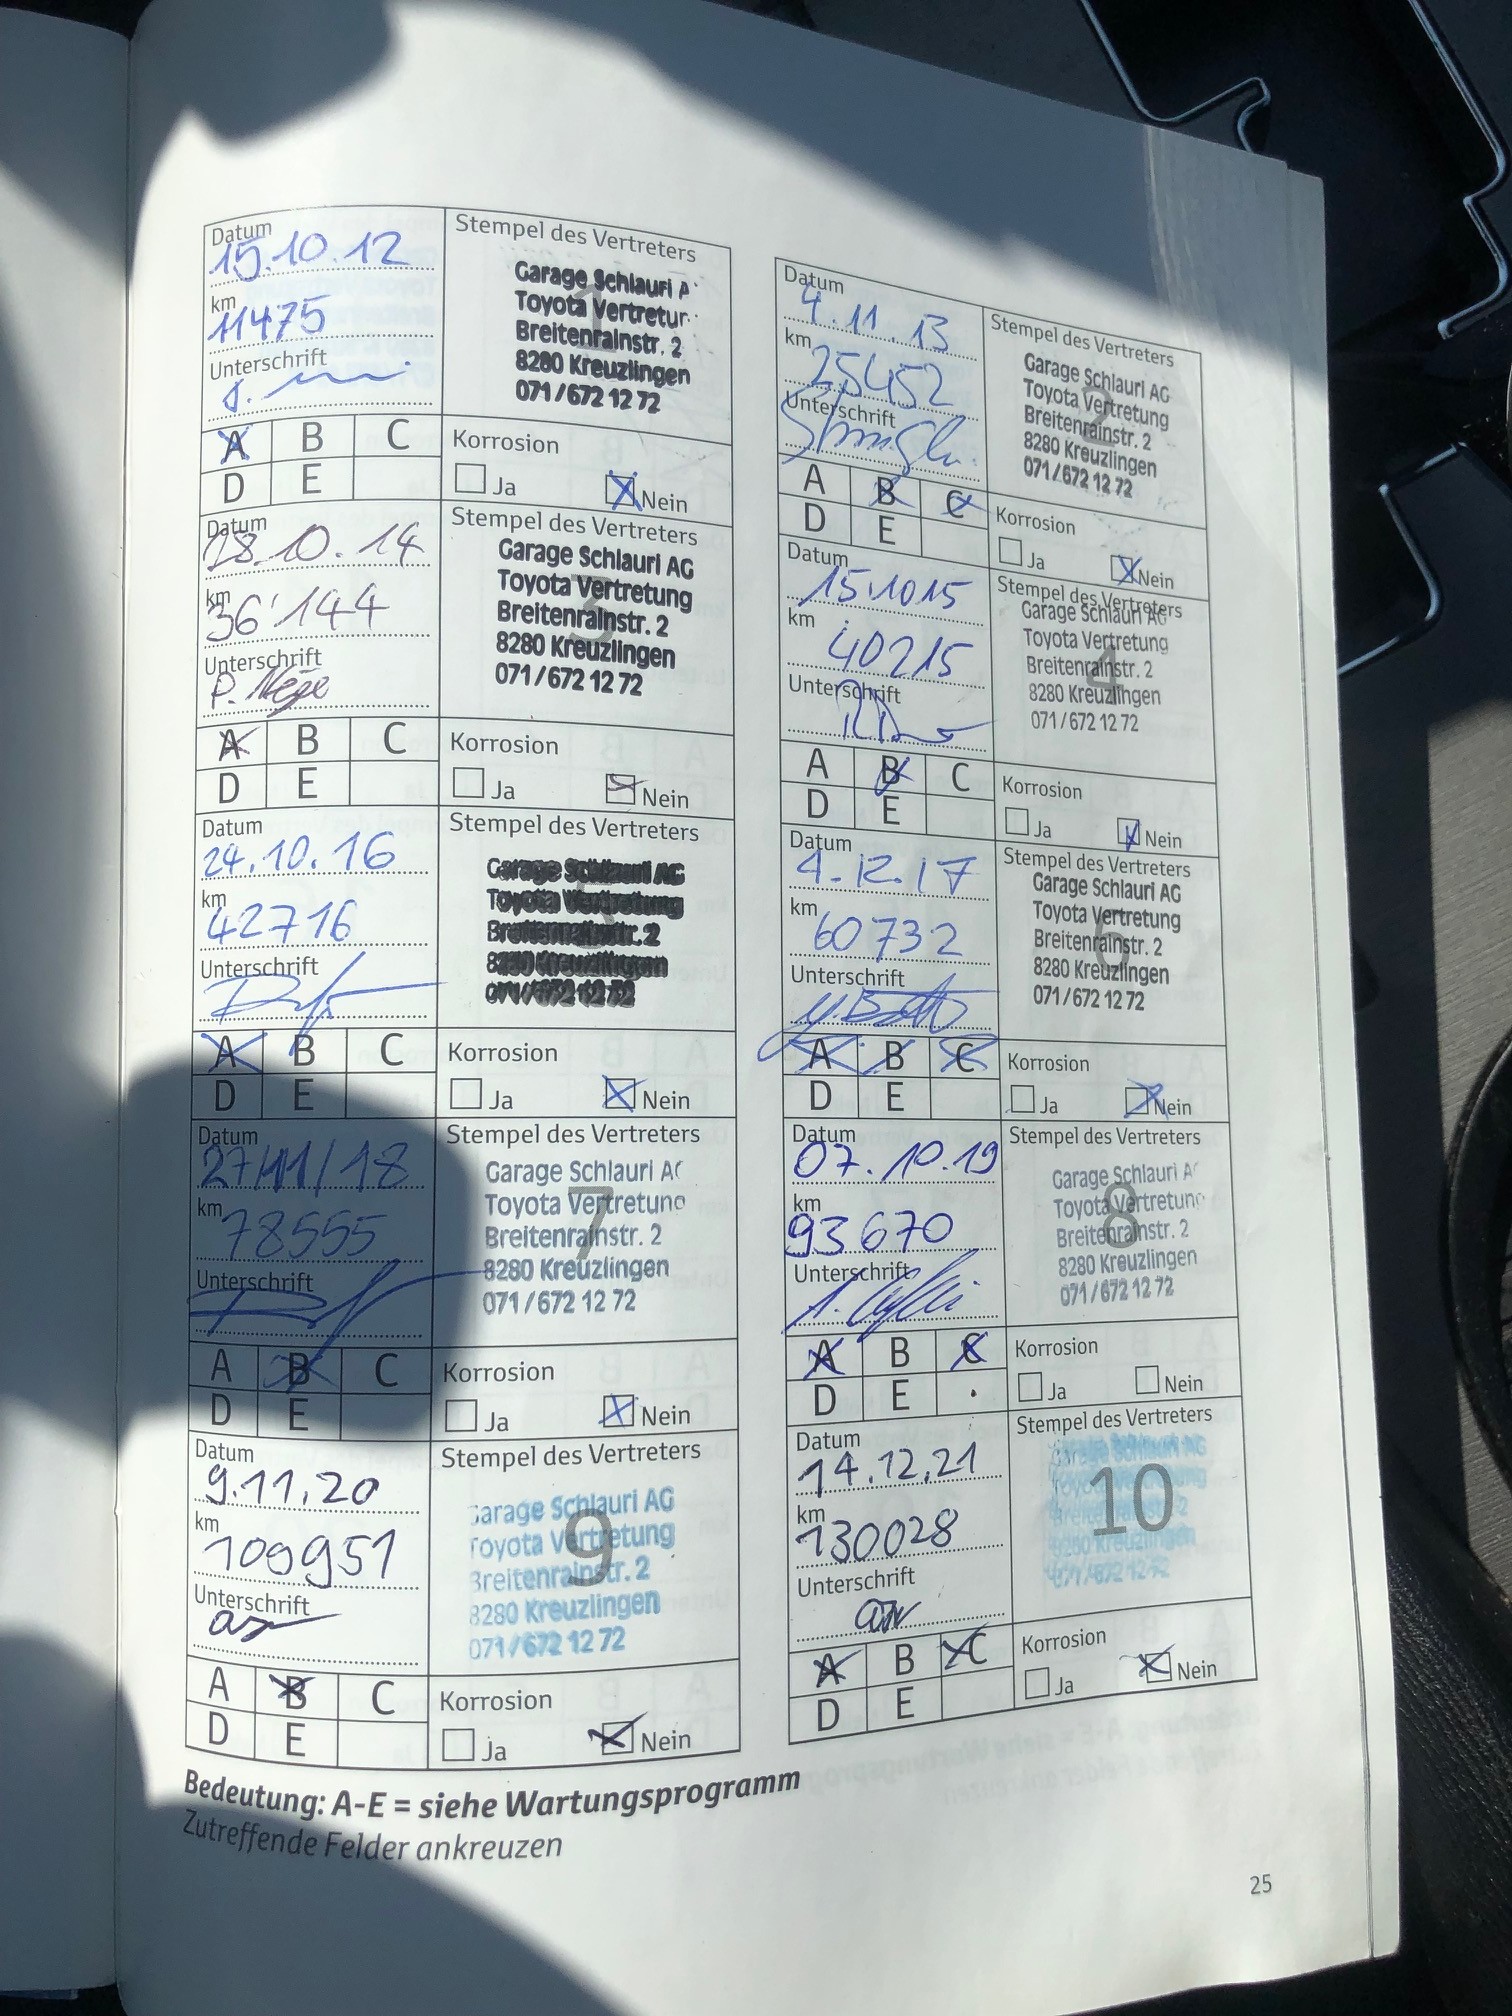 Datum
15.10.12
km
11475
Unterschrift
Stempel des Vertreters
1
Garage Schlauri A
Toyota Vertretur
Breitenrainstr. 2
8280 Kreuzlingen
071/672 12 72
A B C
D E
Korrosion
Ja Nein
Datum
4.11.13
km
25452
Unterschrift
Stempel des Vertreters
2
Garage Schlauri AG
Toyota Vertretung
Breitenrainstr. 2
8280 Kreuzlingen
071/672 12 72
A B C
D E
Korrosion
Ja Nein
Datum
28.10.14
km
36'144
Unterschrift
Stempel des Vertreters
3
Garage Schlauri AG
Toyota Vertretung
Breitenrainstr. 2
8280 Kreuzlingen
071/672 12 72
A B C
D E
Korrosion
Ja Nein
Datum
15.10 15
km
40215
Unterschrift
Stempel des Vertreters
4
Garage Schlauri AG
Toyota Vertretung
Breitenrainstr. 2
8280 Kreuzlingen
071/672 12 72
A B C
D E
Korrosion
Ja Nein
Datum
24.10.16
km
42716
Unterschrift
Stempel des Vertreters
5
Garage Schlauri AG
Toyota Vertretung
Breitenrainstr. 2
8280 Kreuzlingen
071/672 12 72
A B C
D E
Korrosion
Ja Nein
Datum
4.12.17
km
60732
Unterschrift
Stempel des Vertreters
6
Garage Schlauri AG
Toyota Vertretung
Breitenrainstr. 2
8280 Kreuzlingen
071/672 12 72
A B C
D E
Korrosion
Ja Nein
Datum
27/11/18
km
78555
Unterschrift
Stempel des Vertreters
7
Garage Schlauri AG
Toyota Vertretung
Breitenrainstr. 2
8280 Kreuzlingen
071/672 12 72
A B C
D E
Korrosion
Ja Nein
Datum
07.10.19
km
93670
Unterschrift
Stempel des Vertreters
8
Garage Schlauri AG
Toyota Vertretung
Breitenrainstr. 2
8280 Kreuzlingen
071/672 12 72
A B C
D E
Korrosion
Ja Nein
Datum
9.11.20
km
100951
Unterschrift
Stempel des Vertreters
9
Garage Schlauri AG
Toyota Vertretung
Breitenrainstr. 2
8280 Kreuzlingen
071/672 12 72
A B C
D E
Korrosion
Ja Nein
Datum
14.12.21
km
130028
Unterschrift
Stempel des Vertreters
10
Garage Schlauri AG
Toyota Vertretung
Breitenrainstr. 2
8280 Kreuzlingen
071/672 12 72
A B C
D E
Korrosion
Ja Nein
Bedeutung: A-E = siehe Wartungsprogramm
Zutreffende Felder ankreuzen
25